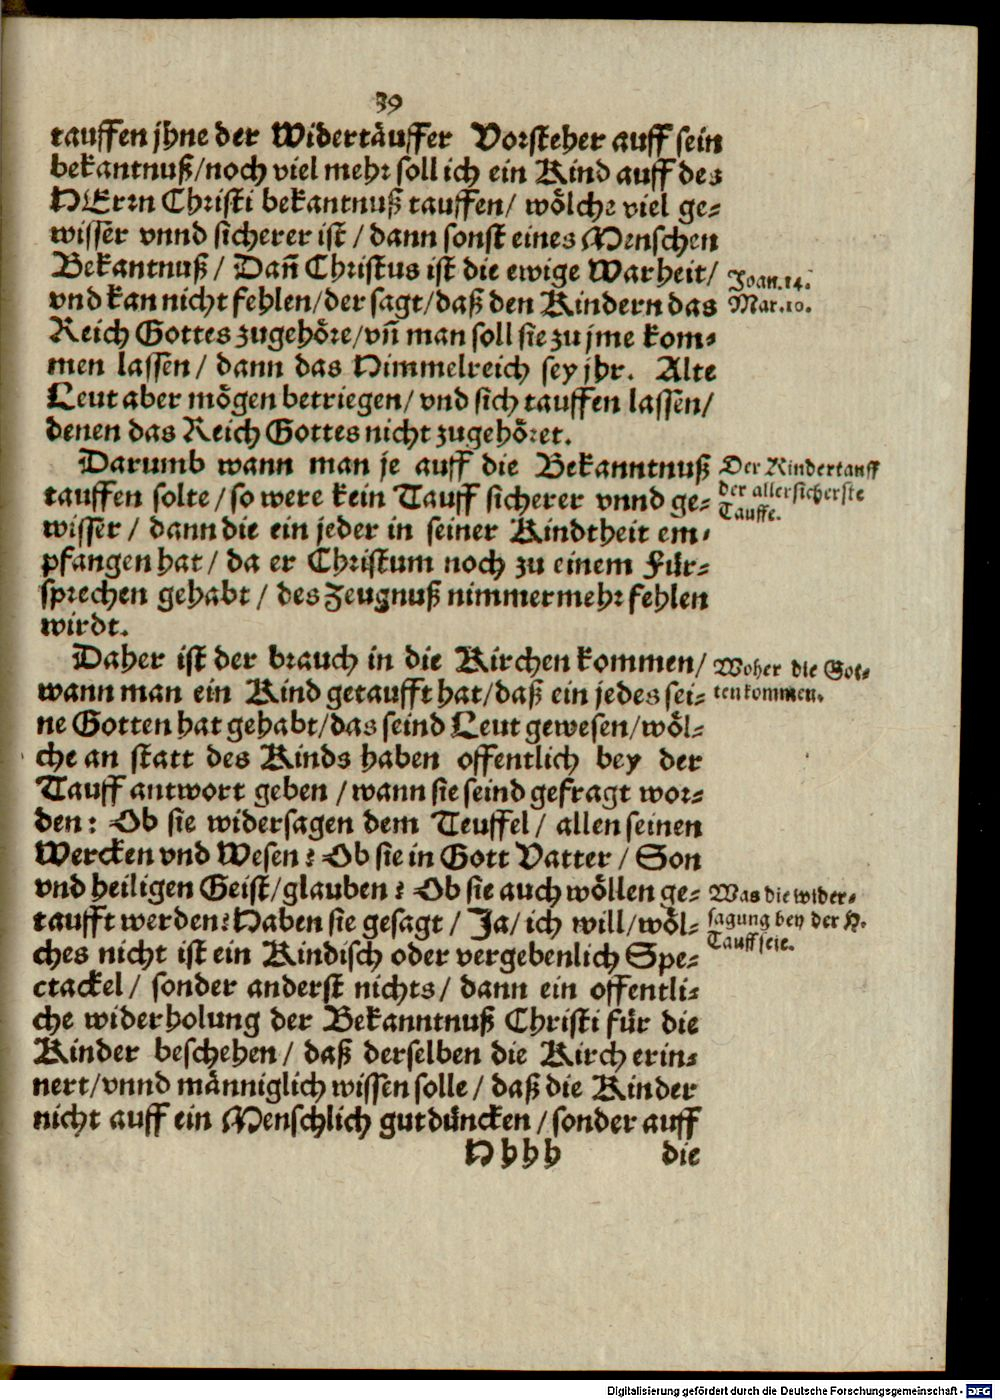 39
tauffen jhne der Widertäuffer Vorsteher auff sein
bekantnuß/noch viel mehr soll ich ein Kind auff des
HErrn Christi bekantnuß tauffen/ wölche viel ge-
wisser vnnd sicherer ist / dann sonst eines Menschen
Bekantnuß / Dañ Christus ist die ewige Warheit/
Joan.14.
vnd kan nicht fehlen/der sagt/daß den Kindern das
Mar.10.
Reich Gottes zugehöre/vñ man soll sie zu jme kom-
men lassen/ dann das Himmelreich sey jhr. Alte
Leut aber mögen betriegen/ vnd sich tauffen lassen/
denen das Reich Gottes nicht zugehöret.
Darumb wann man je auff die Bekanntnuß
Der Kindertauff
tauffen solte/so were kein Tauff sicherer vnnd ge-
der allersicherste
Tauffe.
wisser / dann die ein jeder in seiner Kindtheit em-
pfangen hat / da er Christum noch zu einem Für-
sprechen gehabt / des Zeugnuß nimmermehr fehlen
wirdt.
Daher ist der brauch in die Kirchen kommen/
Woher die Got-
wann man ein Kind getaufft hat/daß ein jedes sei-
ten kommen.
ne Gotten hat gehabt/das seind Leut gewesen/wöl-
che an statt des Kinds haben offentlich bey der
Tauff antwort geben / wann sie seind gefragt wor-
den: Ob sie widersagen dem Teuffel / allen seinen
Wercken vnd Wesen? Ob sie in Gott Vatter / Son
vnd heiligen Geist/glauben? Ob sie auch wöllen ge-
Was die wider-
taufft werden? Haben sie gesagt / Ja/ ich will/wöl-
sagung bey der H.
Tauff seie.
ches nicht ist ein Kindisch oder vergebenlich Spe-
ctackel/ sonder anderst nichts/ dann ein offentli-
che widerholung der Bekanntnuß Christi für die
Kinder beschehen/ daß derselben die Kirch erin-
nert/vnnd männiglich wissen solle/ daß die Kinder
nicht auff ein Menschlich gutdüncken /sonder auff
H h h h die
Digitalisierung gefördert durch die Deutsche Forschungsgemeinschaft - DFG